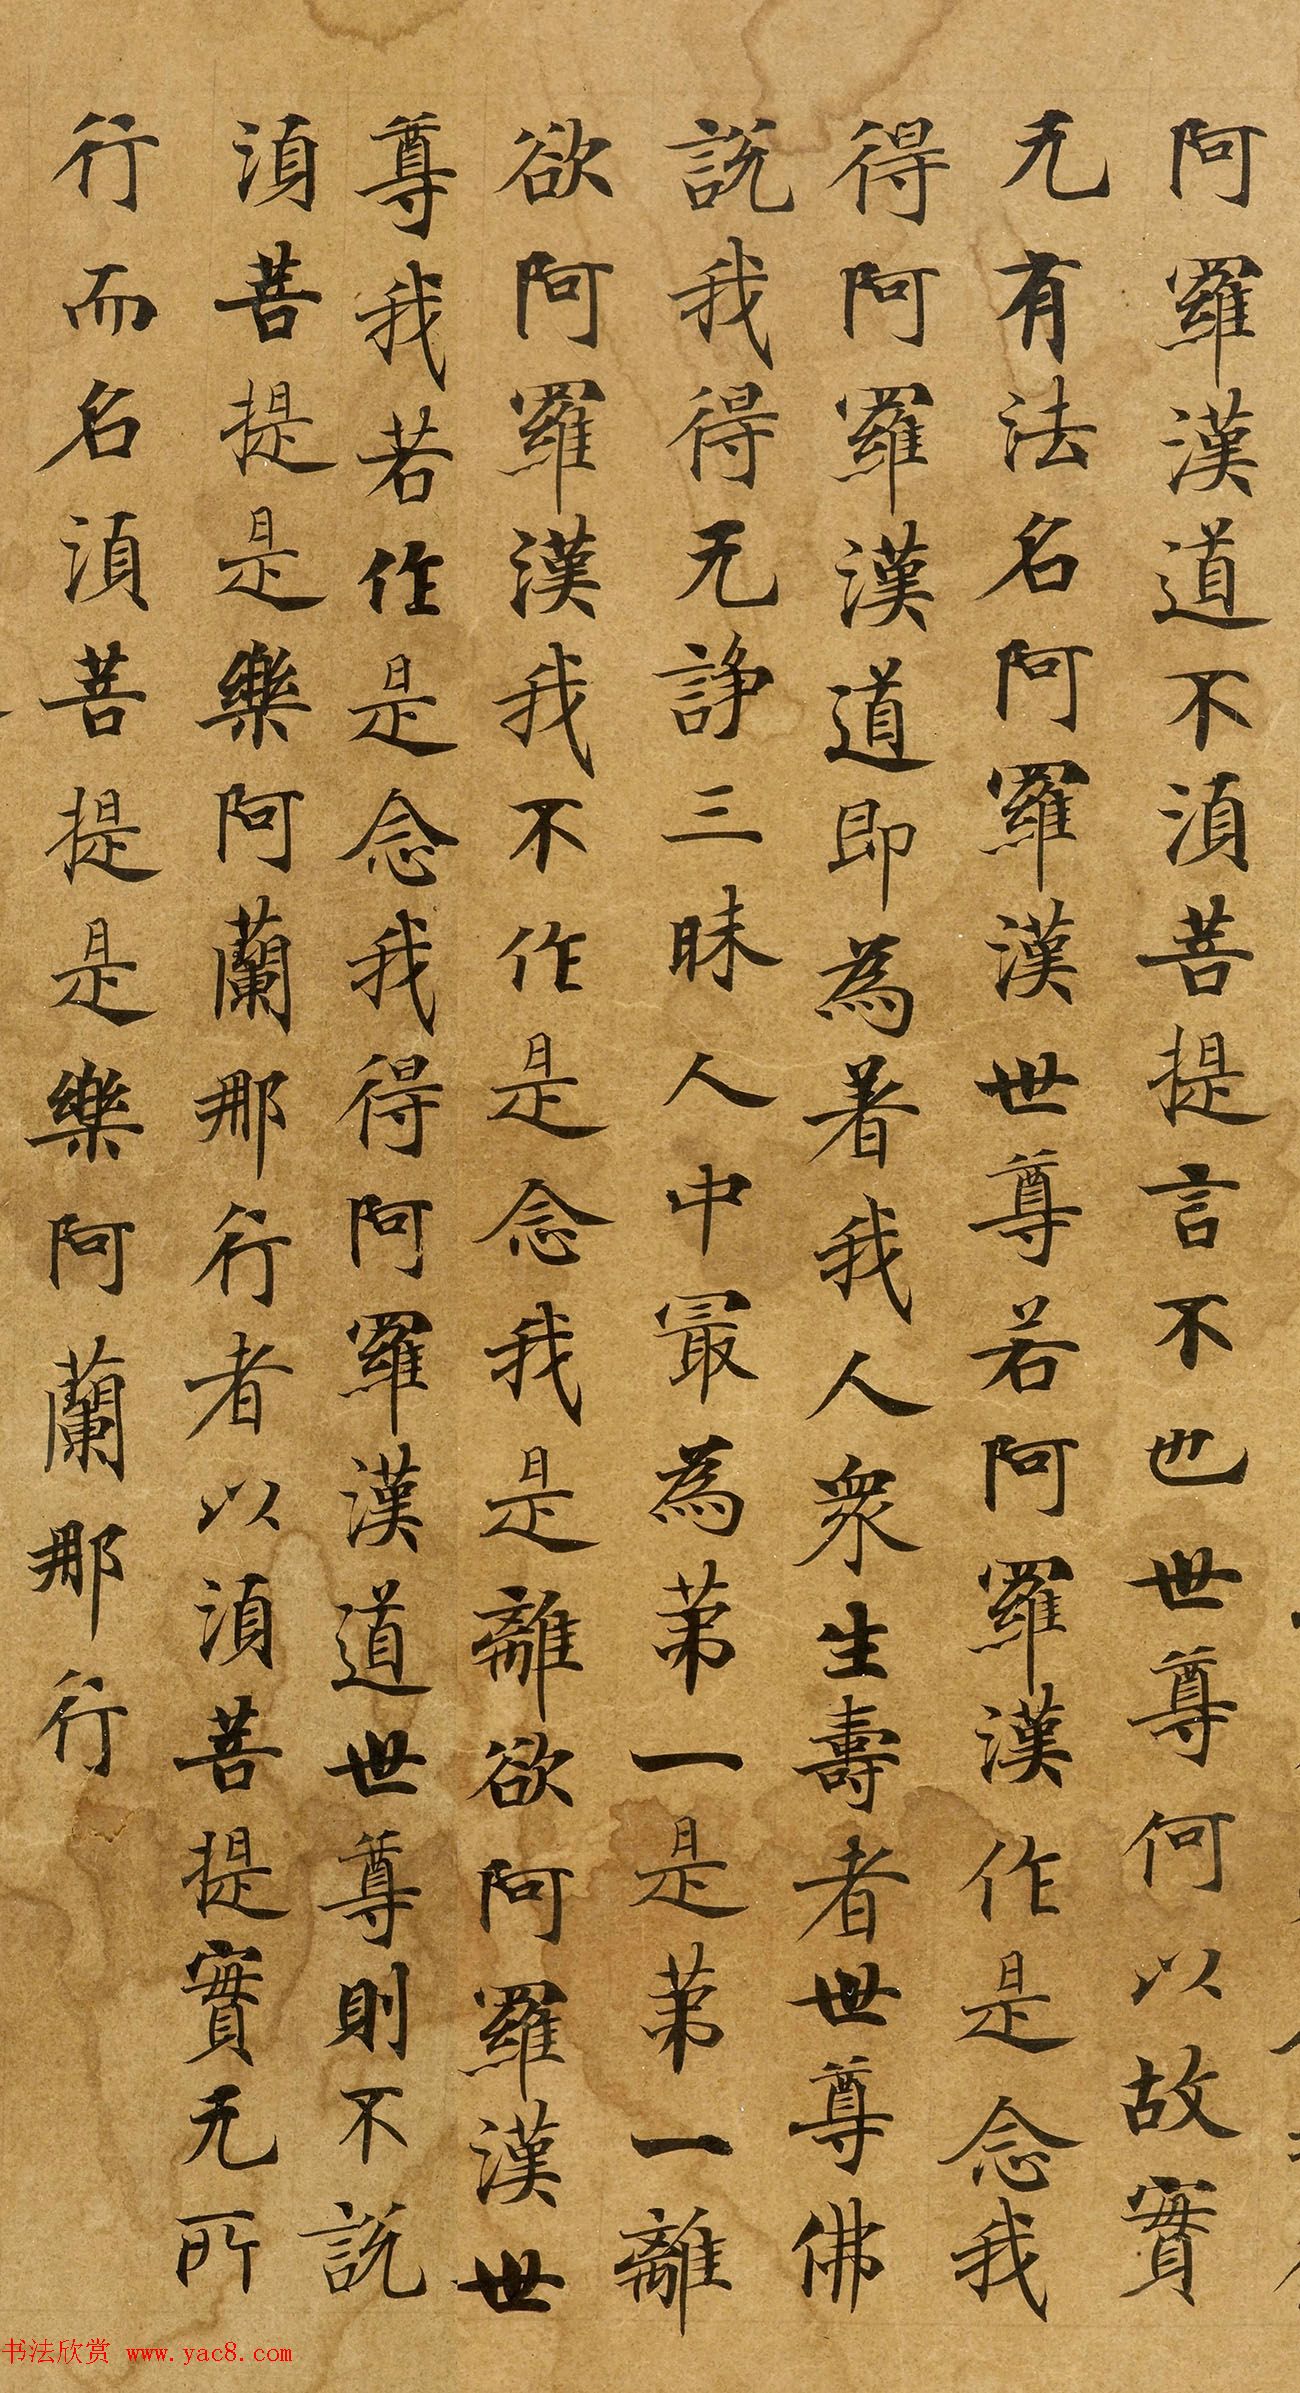 阿羅漢道不湏菩提言不也世尊何以故實
无有法名阿羅漢世尊若阿羅漢作是念我
得阿羅漢道即為著我人衆生壽者世尊佛
說我得无諍三昧人中冣為苐一是苐一離
欲阿羅漢我不作是念我是離欲阿羅漢世
尊我若作是念我得阿羅漢道世尊則不說
湏菩提是樂阿蘭那行者以湏菩提實无所
行而名湏菩提是樂阿蘭那行
书法欣赏 www.yac8.com